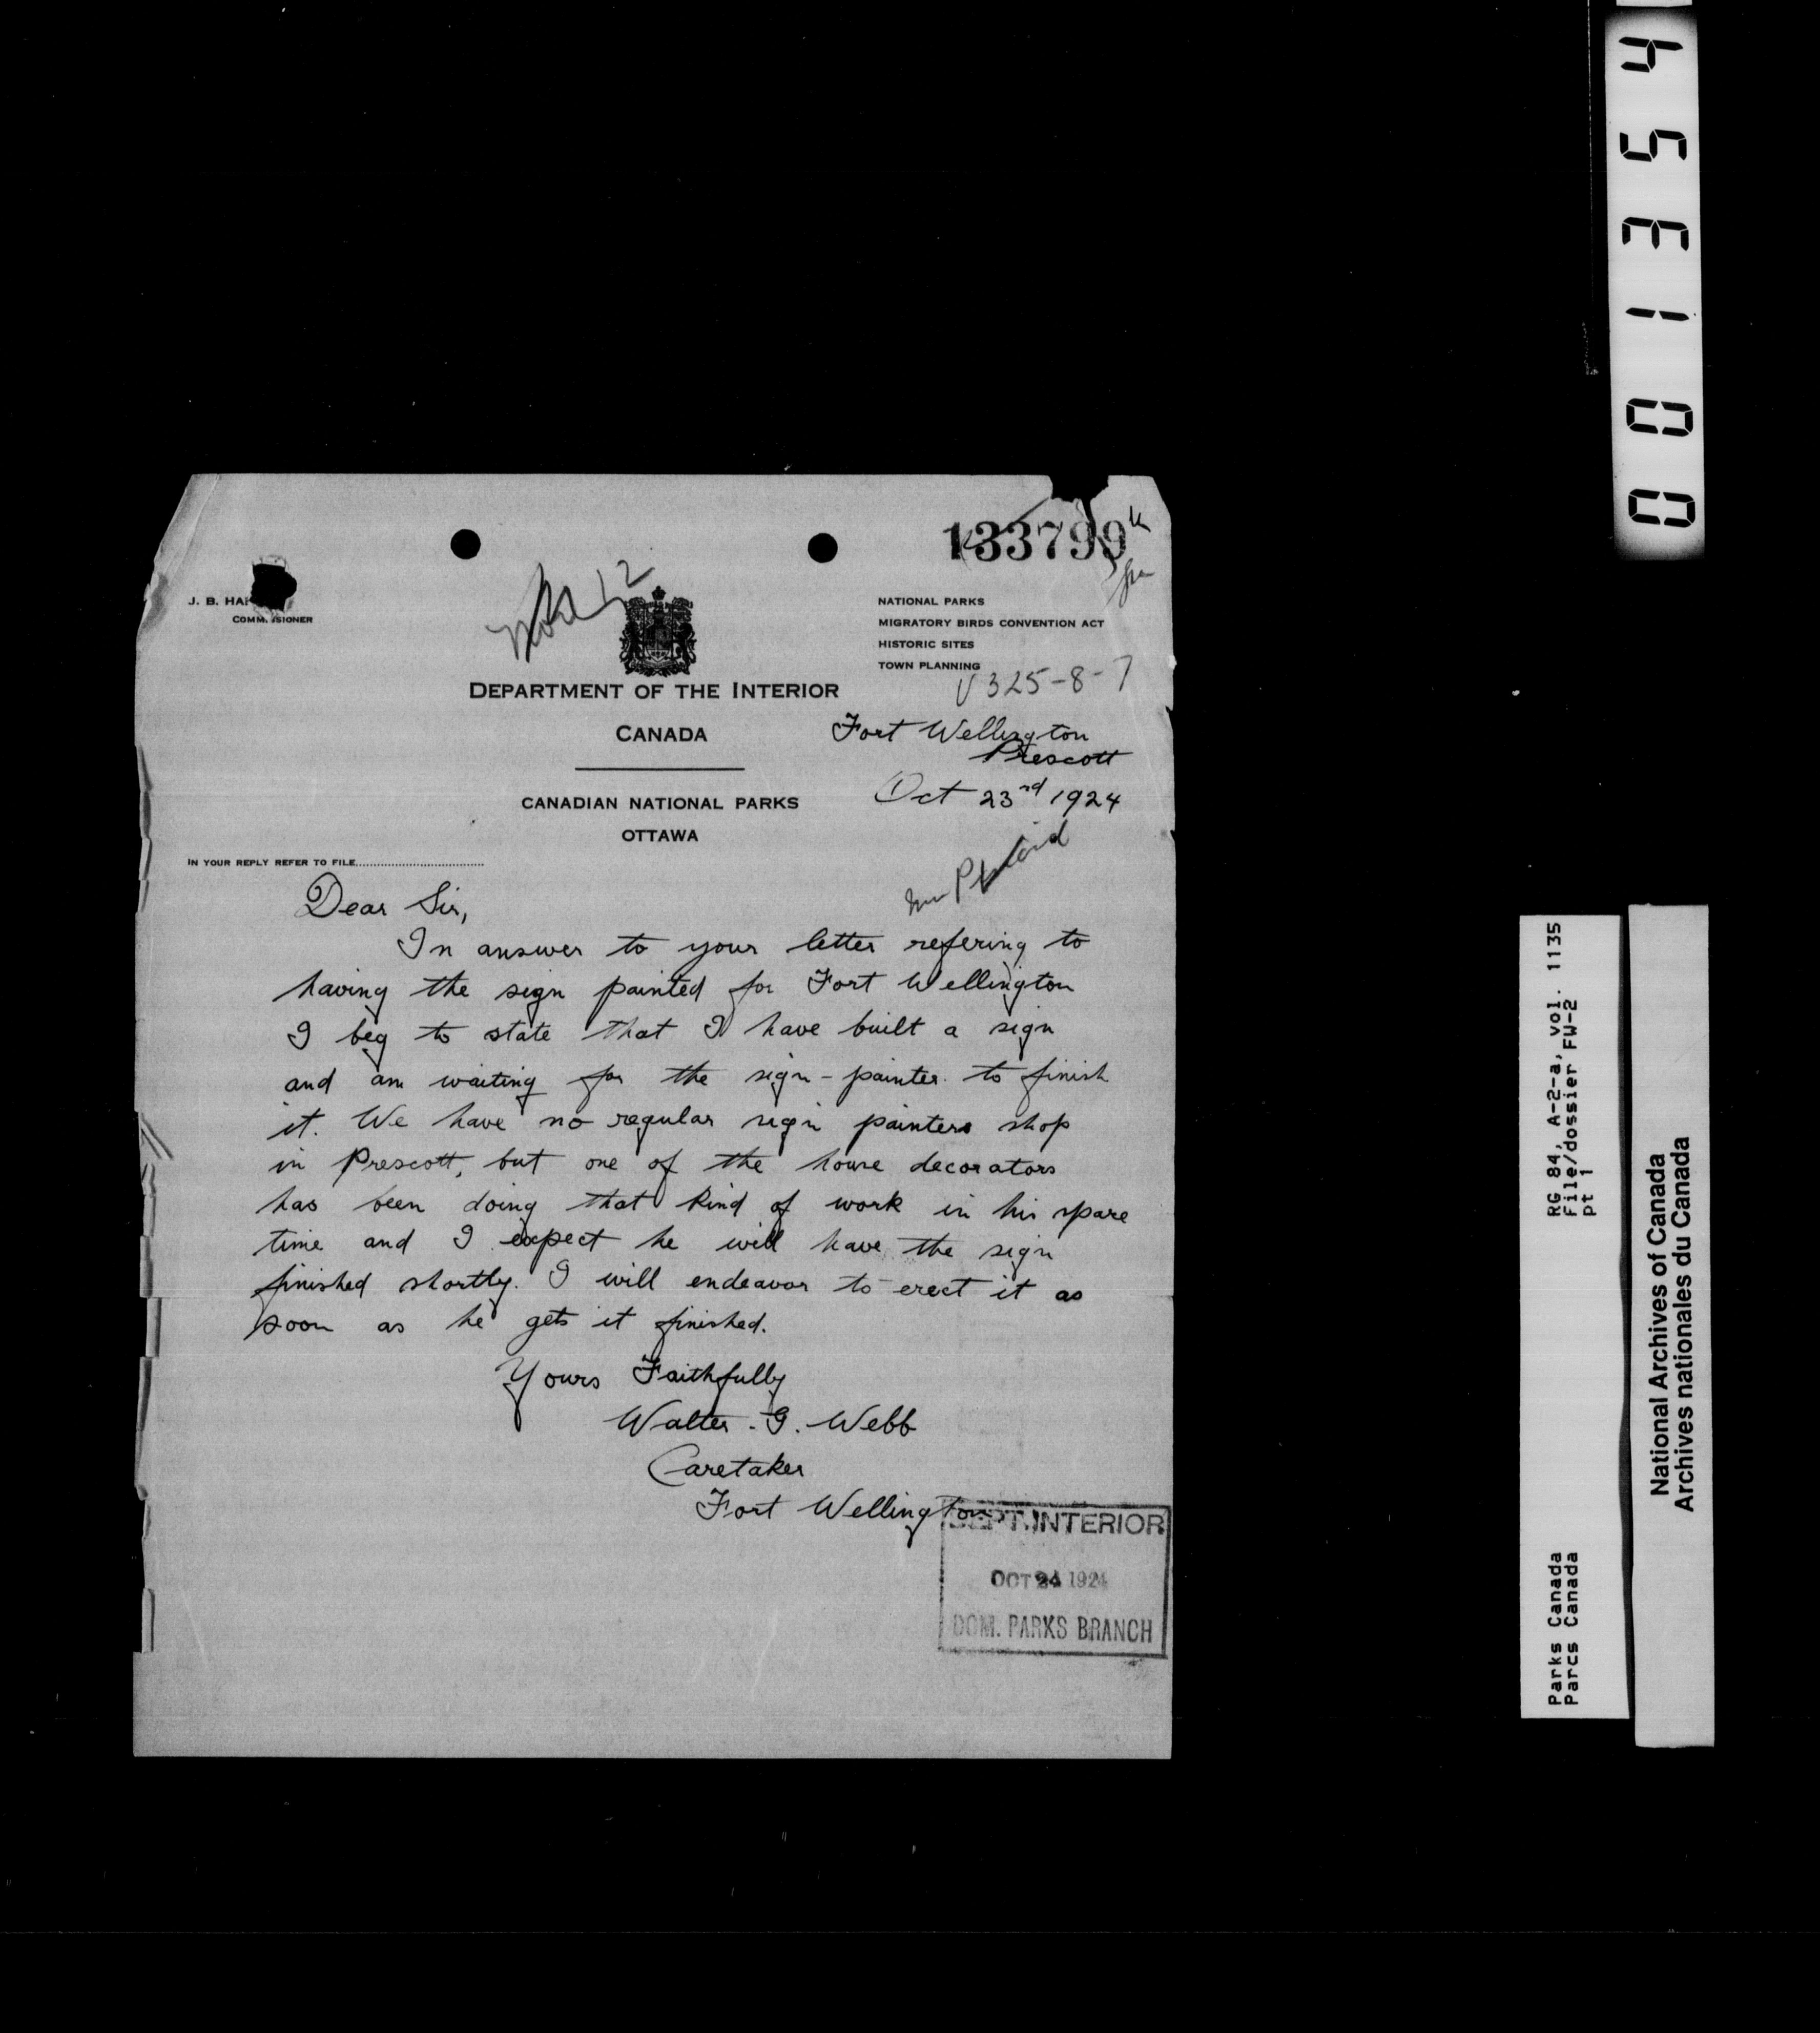 133799
J. B. HA
COMM SIONER
NATIONAL PARKS
MIGRATORY BIRDS CONVENTION ACT
HISTORIC SITES
TOWN PLANNING
325-8-7
DEPARTMENT OF THE INTERIOR
CANADA
Fort Wellington
Prescott
Oct 23rd 1924
CANADIAN NATIONAL PARKS
OTTAWA
IN YOUR REPLY REFER TO FILE
Dear Sir,
In answer to your letter refering to
having the sign painted for Fort Wellington
I beg to state that I have built a sign
and am waiting for the sign-painter to finish
it. We have no regular sign painters shop
in Prescott, but one of the house decorators
has been doing that kind of work in his spare
time and I expect he will have the sign
finished shortly. I will endeavor to erect it as
soon as he gets it finished.
Yours Faithfully
Walter. G. Webb
Caretaker
Fort Wellington
DEPT. INTERIOR
OCT 24 1924
DOM. PARKS BRANCH
001354
RG 84, A-2-a, vol. 1135
File/dossier FW-2
pt 1
Parks Canada
Parcs Canada
National Archives of Canada
Archives nationales du Canada